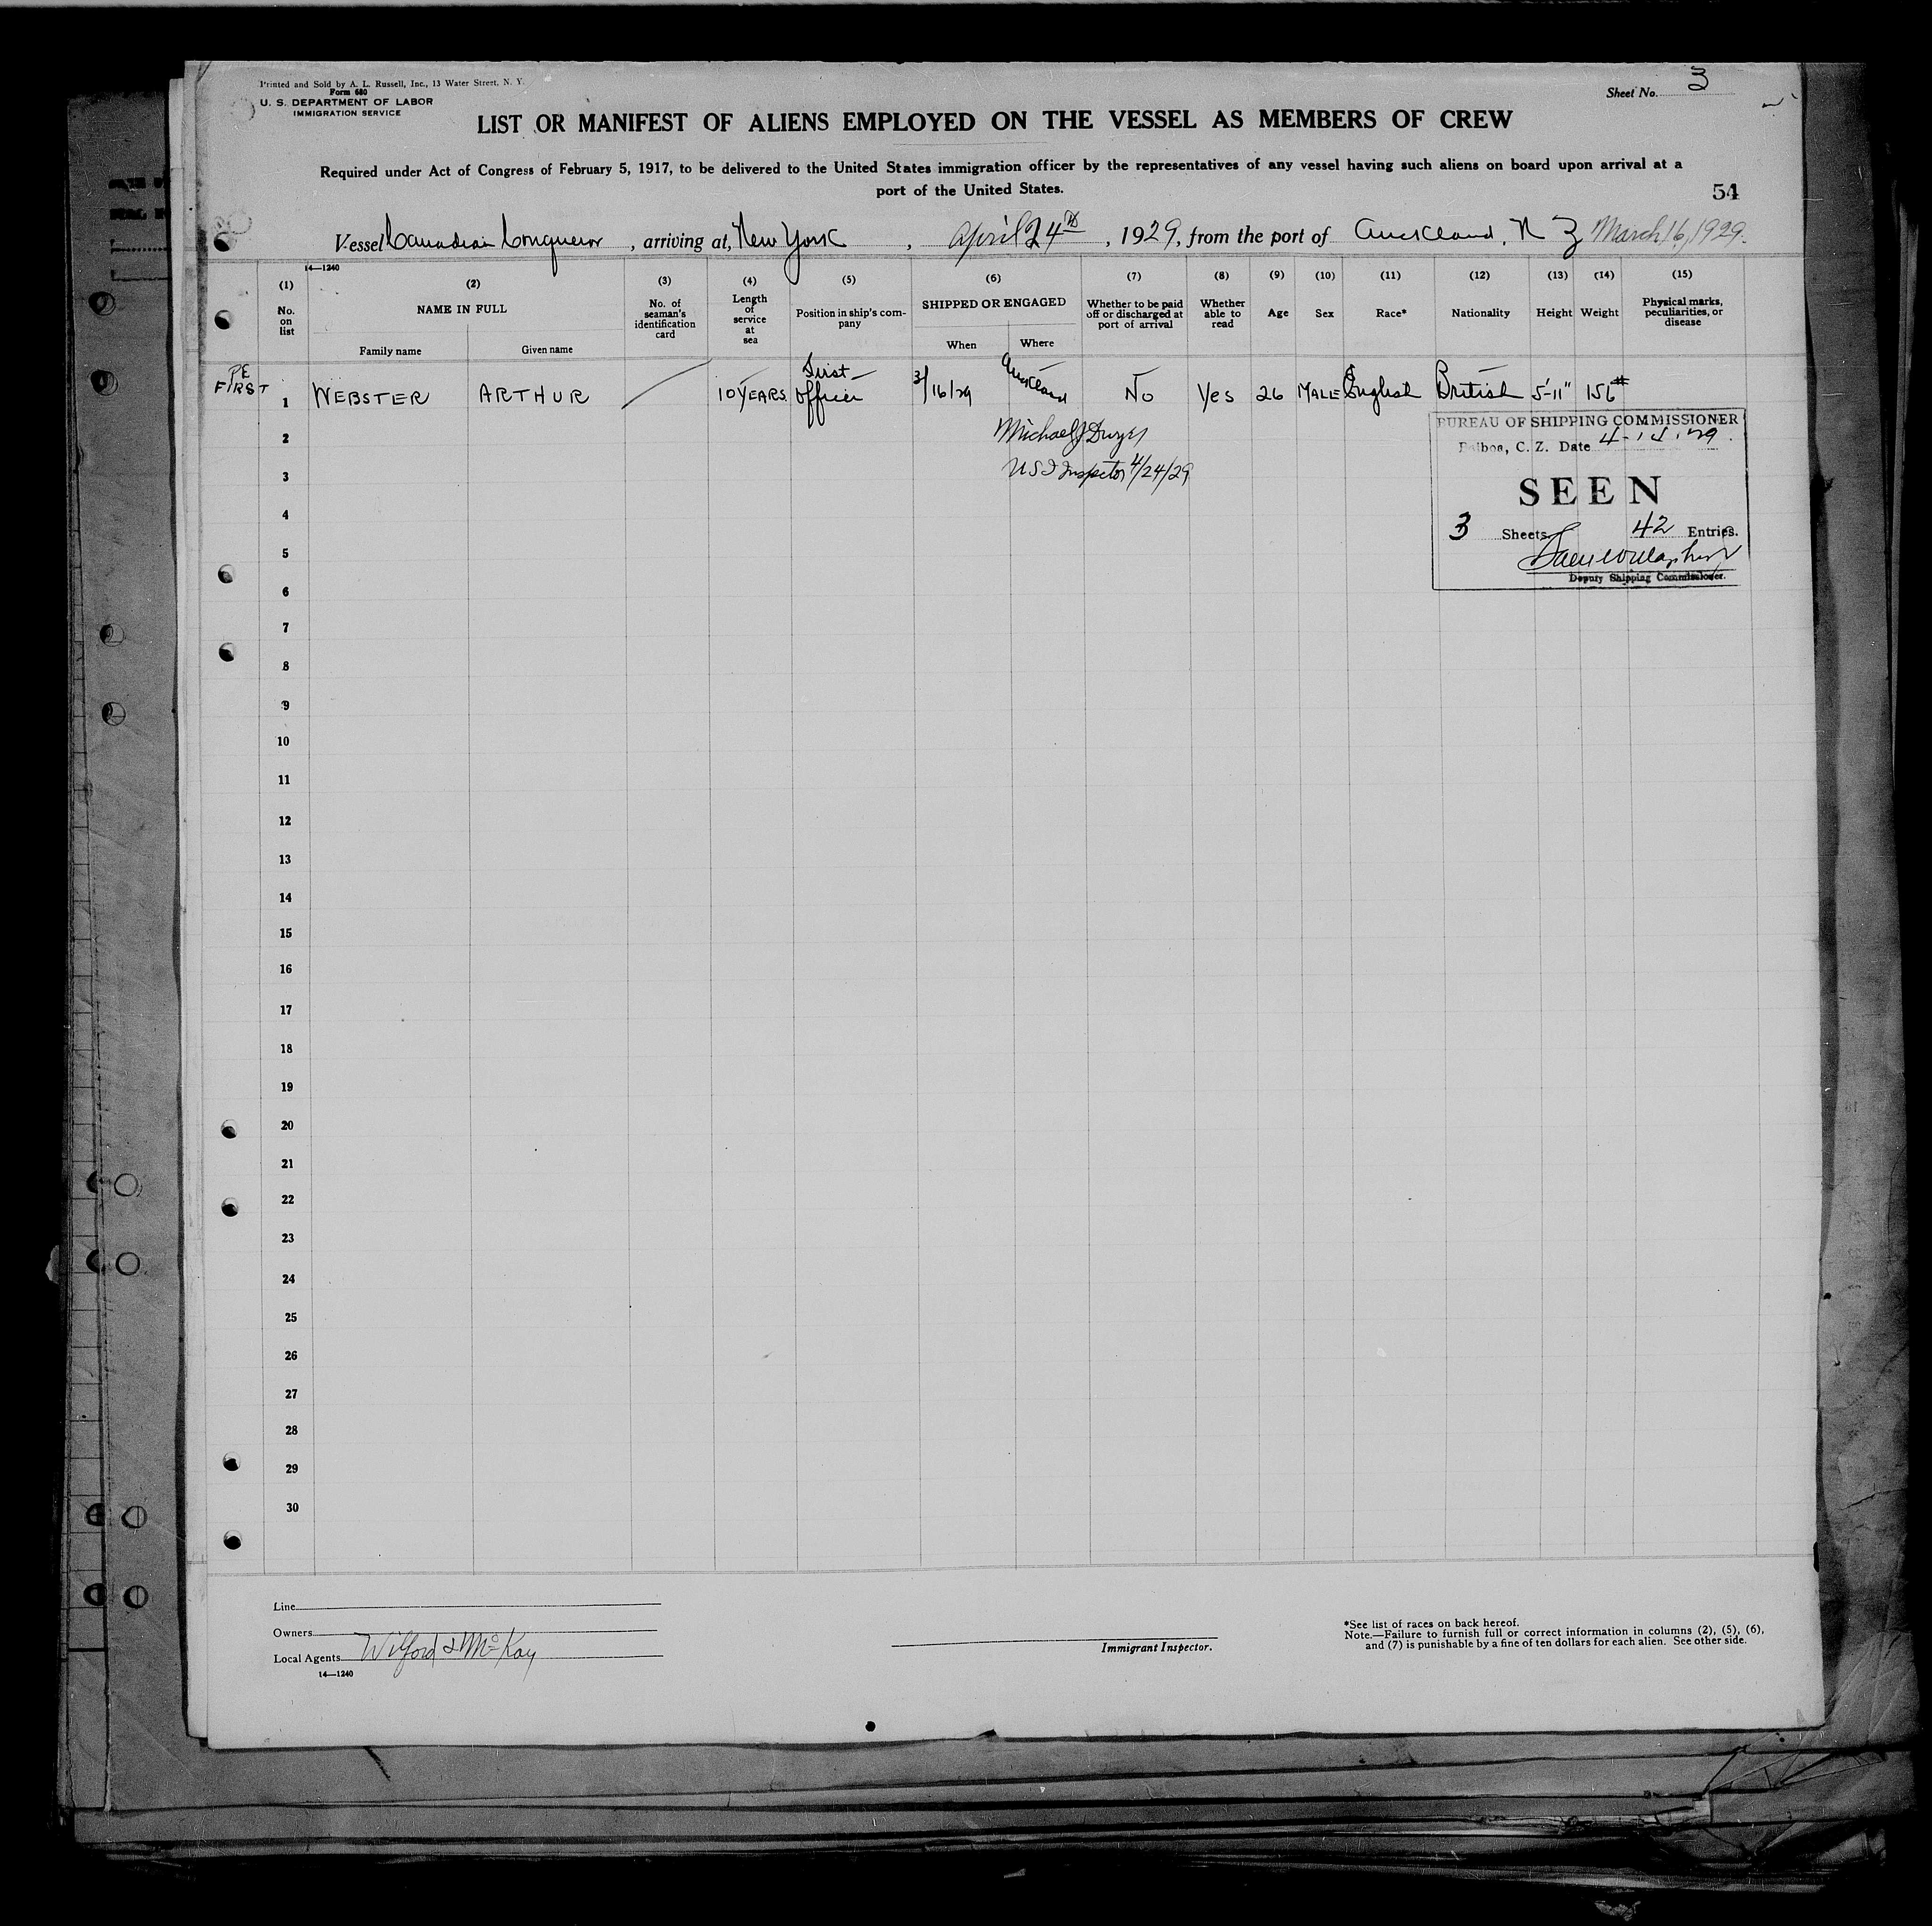 Printed and Sold by A. L. Russell, Inc., 13 Water Street, N. Y.
Form 680
U. S. DEPARTMENT OF LABOR
IMMIGRATION SERVICE
Sheet No. 3
LIST OR MANIFEST OF ALIENS EMPLOYED ON THE VESSEL AS MEMBERS OF CREW
Required under Act of Congress of February 5, 1917, to be delivered to the United States immigration officer by the representatives of any vessel having such aliens on board upon arrival at a
port of the United States.
54
Vessel Canadian Conqueror, arriving at, New York, April 24th, 1929, from the port of Auckland, N Z March 16, 1929.
14—1240
(1) No. on list
(2) NAME IN FULL
Family name Given name
(3) No. of seaman's identification card
(4) Length of service at sea
(5) Position in ship's company
(6) SHIPPED OR ENGAGED
When Where
(7) Whether to be paid off or discharged at port of arrival
(8) Whether able to read
(9) Age
(10) Sex
(11) Race*
(12) Nationality
(13) Height
(14) Weight
(15) Physical marks, peculiarities, or disease
PE
FIRST 1 WEBSTER ARTHUR 10 YEARS. First Officer 3/16/29 Auckland No Yes 26 MALE English British 5'-11" 156#
2 Michael J Dwyer
3 USI Inspector 4/24/29
BUREAU OF SHIPPING COMMISSIONER
Balboa, C. Z. Date 4-14-29.
SEEN
3 Sheets 42 Entries.
Deputy Shipping Commissioner.
4
5
6
7
8
9
10
11
12
13
14
15
16
17
18
19
20
21
22
23
24
25
26
27
28
29
30
Line
Owners
Local Agents Wilford & McKay
14—1240
Immigrant Inspector.
*See list of races on back hereof.
Note.—Failure to furnish full or correct information in columns (2), (5), (6),
and (7) is punishable by a fine of ten dollars for each alien. See other side.